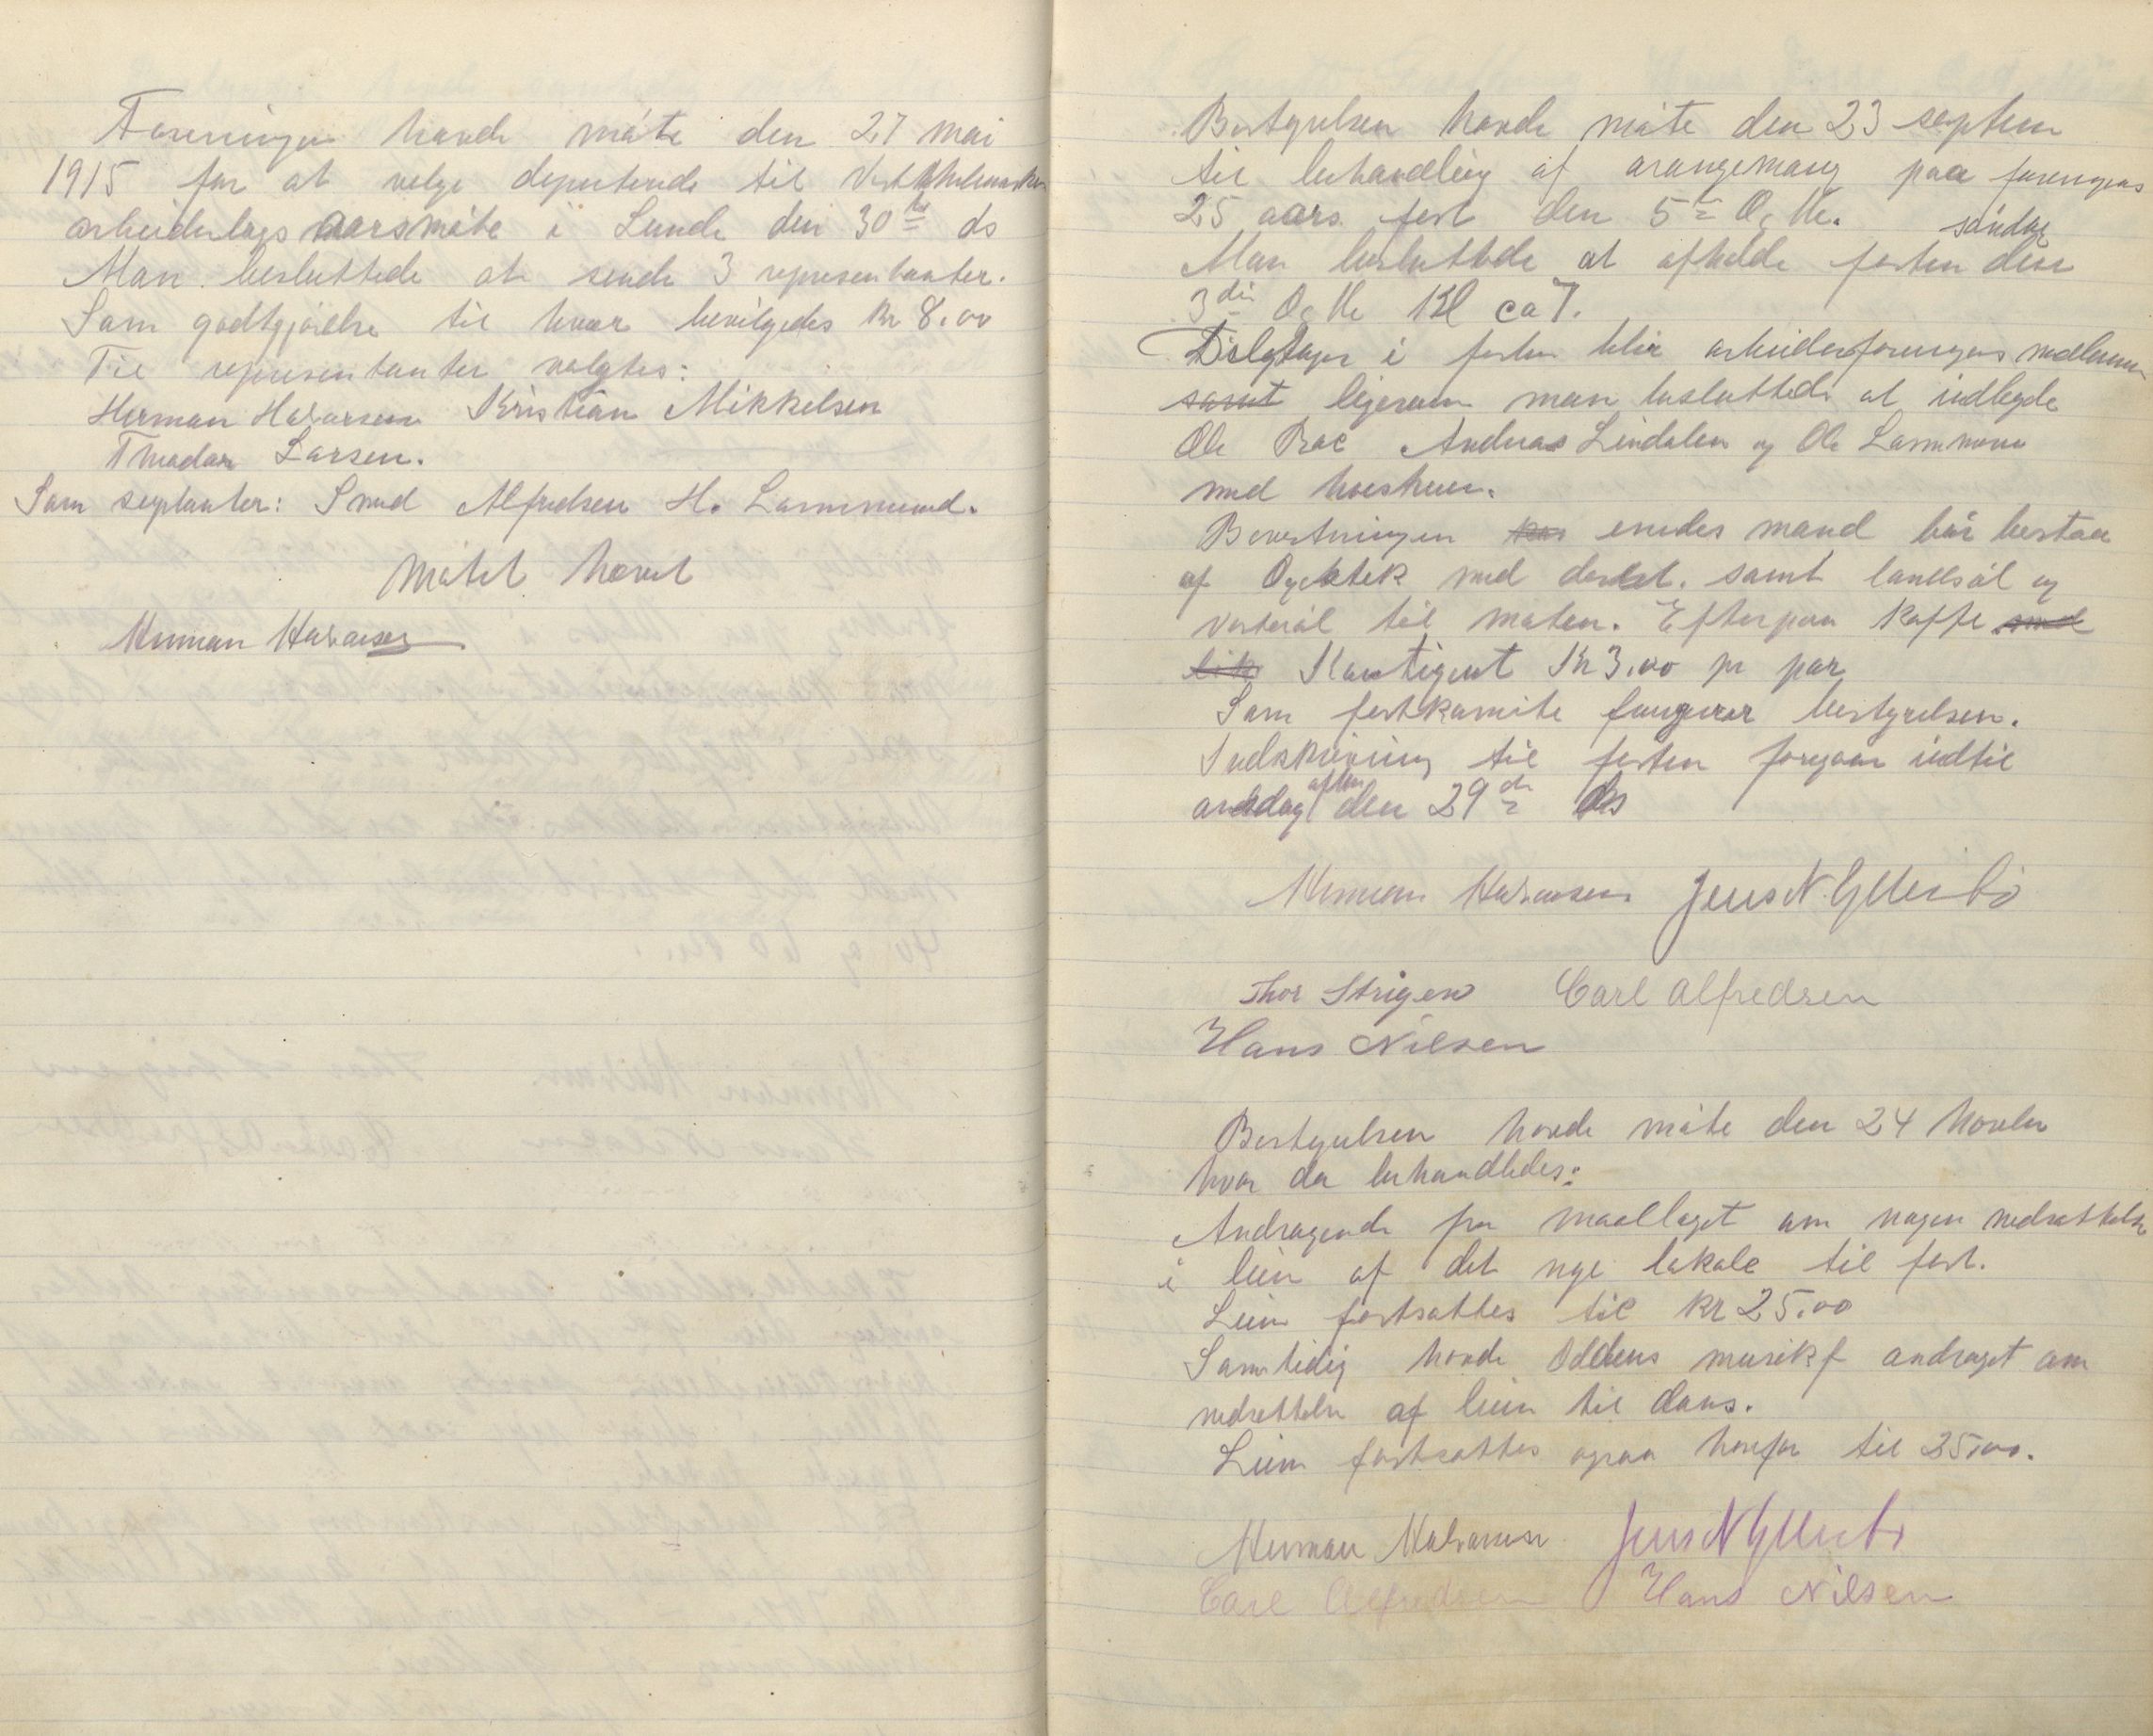 Foreningen havde møte den 27 mai
1915 for at velge deputerede til Vest
arbeiderlags aarsmøte i Lunde den 30te ds
Man besluttede at sende 3 representanter.
Som godtgjørelse til hver bevilgedes kr 8.00
Til representanter valgtes:
Herman Halvorsen Kristian Mikkelsen
Thodor Larsen.
Som suplanter: Alfredsen H. Lammund.
Møtet hævet
Herman Halvorsen
Bestyrelsen havde møte den 23 septem
til behandling af arangemang paa forengens
25 aars fest den 5te Oc
Man besluttede at afholde festen den søndag
3die Kl ca 7.
Deltager i festen blir arbeiderforengens medlemmer
samt ligesom man besluttede at indbyde
Ole Andreas Lindalen og Ole
med hvestruer.
Bevertningen enedes mand bør bestaa
af med samt landsøl og
vørterøl til maten. Efterpaa kaffe med
Kontigent Kr 3.00 pr par
Som festkomite fungerer bestyrelsen.
Indskrivning til festen foregaar indtil
onsdag aften den 29de ds
Herman Halvorsen Jens N.
Thor Strigen Carl Alfredsen
Hans Nilsen
Bestyrelsen havde møte den 24 Novbr
hvor da behandledes:
Andragende fra maallaget om nogen nedsættelse
i leien af det nye lokale til fest.
Leien fastsattes til kr 25.00
Samtidig havde Oddens musikf andraget om
nedsættelse af leien til dans.
Leien fastsattes ogsaa herfor til 25.00.
Herman Halvorsen Jens N
Carl Alfredsen Hans Nilsen